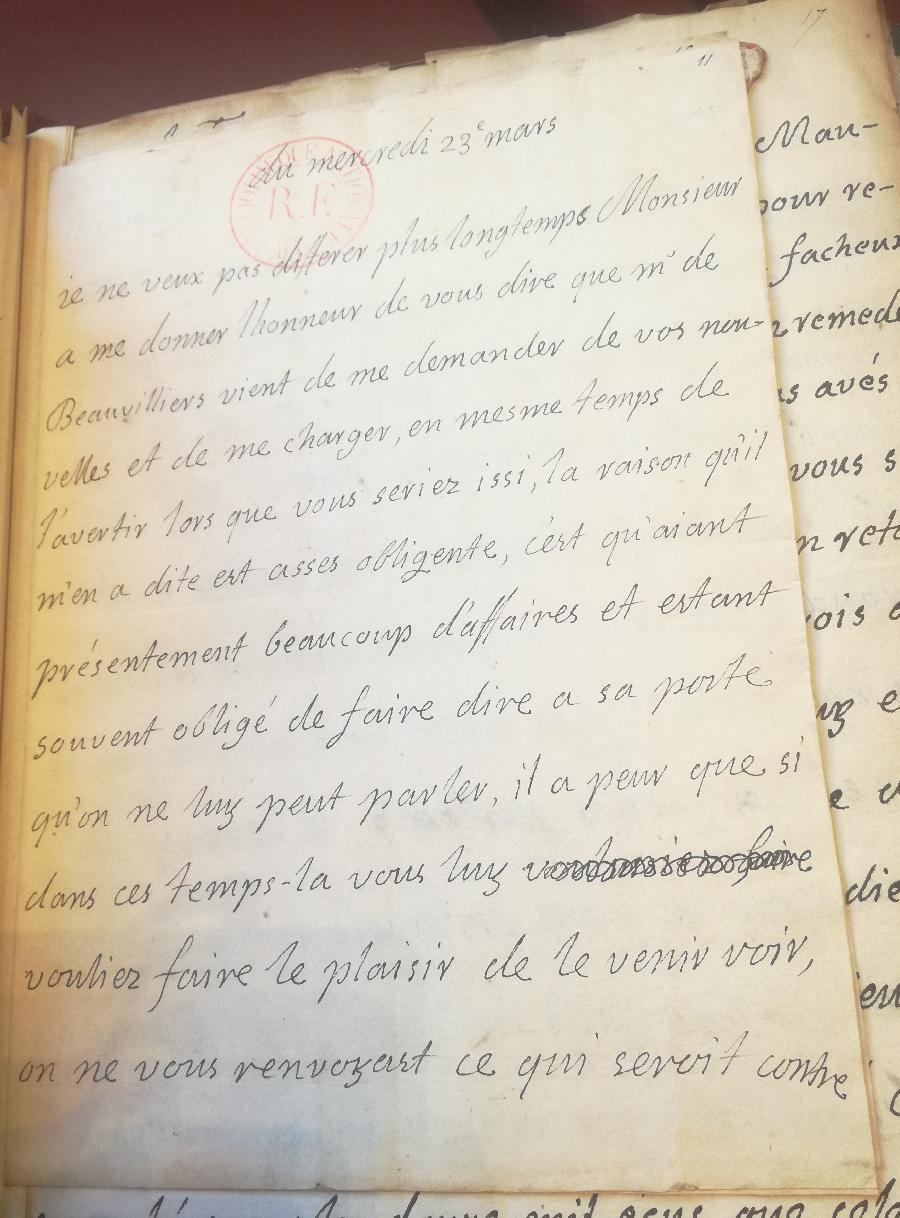 17
11
du mercredi 23e mars
BIBLIOTHEQUE NATIONALE
R.F
ie ne veux pas differer plus longtemps Monsieur
a me donner lhonneur de vous dire que mr de
Beauvilliers vient de me demander de vos nou-
velles et de me charger, en mesme temps de
l'avertir lors que vous seriez issi, la raison qu'il
m'en a dite est asses obligente, c'est qu'aiant
présentement beaucoup d'affaires et estant
souvent obligé de faire dire a sa porte
qu'on ne luy peut parler, il a peur que si
dans ces temps-la vous luy
vouliez faire le plaisir de le venir voir,
on ne vous renvoyast ce qui seroit contre
Mau-
pour re-
facheux
remede
avés
vous s
n reto
ois
e
die